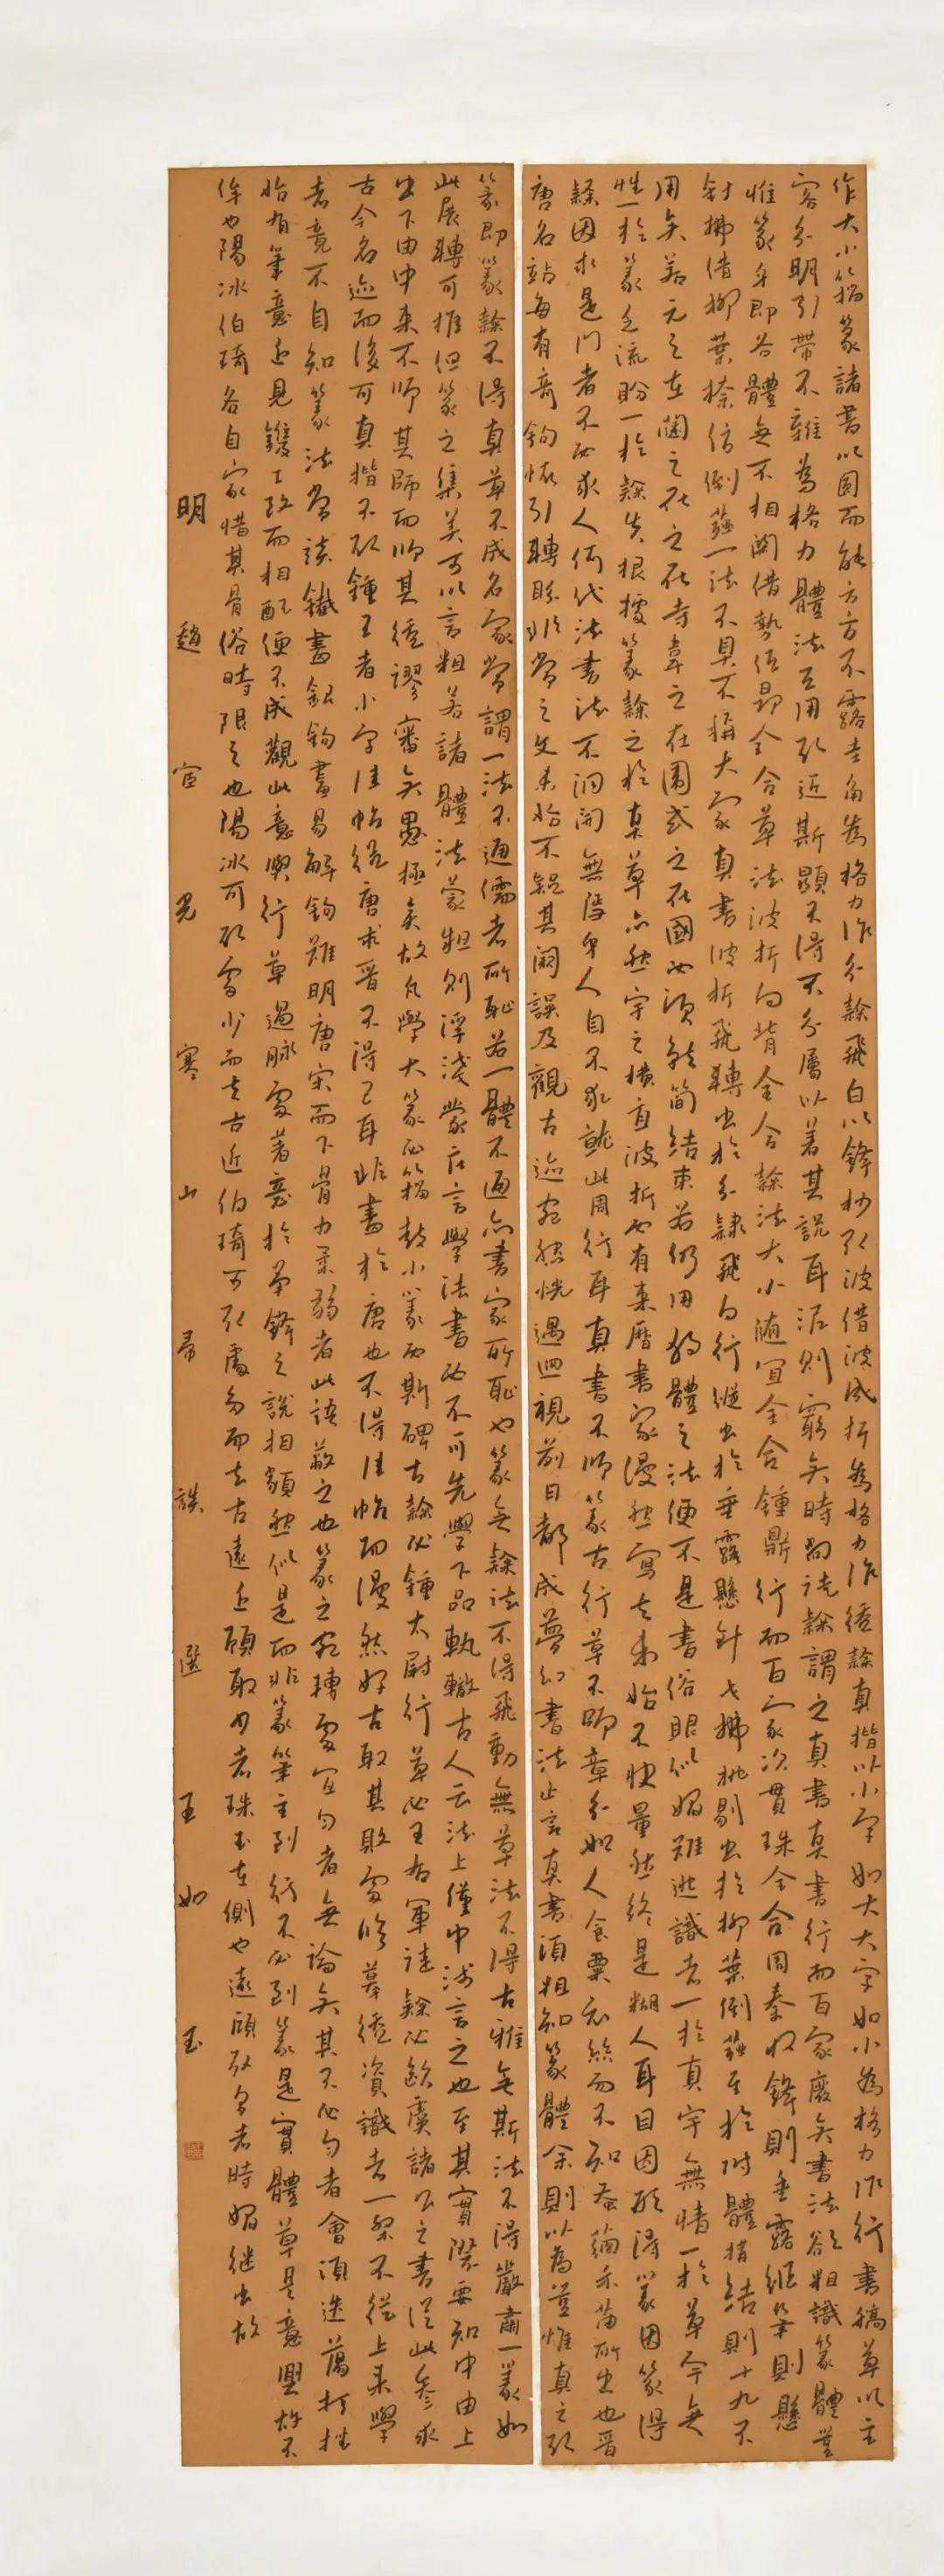 作大小篆籀諸書以圓而能方方不露圭角為格力作分隸飛白以鋒杪取波借波成折為格力作徒隸真楷以小字如大大字如小為格力作行書稿草以主
客分明引帶不雜為格力體法互用取近斯顯不得不分屬以著其說耳泥則窮矣時尚諱隸謂之真書真書行而百家廢矣書法欲粗識篆體豈
惟篆乎即各體無不相關借勢佐昂全合草法波折向背全合隸法大小隨宜全合鐘鼎行而百家次貫珠全合周秦收鋒則垂露縱筆則懸
針拂借柳葉捺仿倒薤一法不具不稱大家真書波折飛轉出於分隸飛白行縱出於垂露懸針尤拂挑剔出於柳葉倒薤至於附體措結則十九不
用矣若元之在闌之在之在寺韋之在圍或之在國必須就簡結束若仍用體之法便不是書俗眼似媚難逃識者一於真字無情一於草字無
性一於篆乏流盼一於隸失根據篆隸之於真草亦然字之橫直波折必有來歷書家漫然寫去未始不快量然終是糊人耳目因隸得篆因篆得
隸因求是門者不必求人何代法書法不洞開無隔身人自不求就此周行耳真書不師篆古行草不師章分如人食粟衣絲而不知蠶繭禾苗所出也晉
唐名帖每有奇鉤怪引轉非常之文未始不疑其闕誤及觀古迹宛然恍遇迴視前日都成夢幻書法止言真書須粗知篆體余則以為豈惟真之取
篆即篆隸不得真草不成名家嘗謂一法不通儒者所恥若一體不通亦書家所恥也篆無隸法不得飛動無草法不得古雅無斯法不得嚴肅一篆如
此展轉可推但篆之集美可以言粗若諸體法蒙粗則浮淺蒙在言學法書必不可先學下品軌轍古人云法上僅中淺言之也至其實際要知中由上
出下由中來不師其師而師其徒謬審矣愚極矣故凡學大篆必籀鼓小篆必斯碑古隸必鍾太尉行草必王右軍徒隸必歐虞諸公之書從此參求
古今名迹而後可真楷不取鍾王者小字佳帖從唐求晉不得已耳非書於唐也不得佳帖而漫然好古取其敗處臨摹徒資識者一粲不從上來學
者竟不自知篆法嘗讀鐵畫銀鉤畫易解鉤難明唐宋而下骨力柔弱者此語蔽之也篆之宛轉處宜勻者無論矣其不必勻者會須迭蕩打拌
始有筆意近見鐫工改而相配便不成觀此意與行草過脈處著意於筆鋒之說相類然似是而非篆筆主到行不必到篆是實體草是意興故不
侔也陽冰伯琦各自家惜其骨俗時限之也陽冰可取處少而去古近伯琦可取處多而去古遠近頗取少者珠玉在側也遠頗取多者時媚繼出故
明趙宧光寒山帚談選王如玉